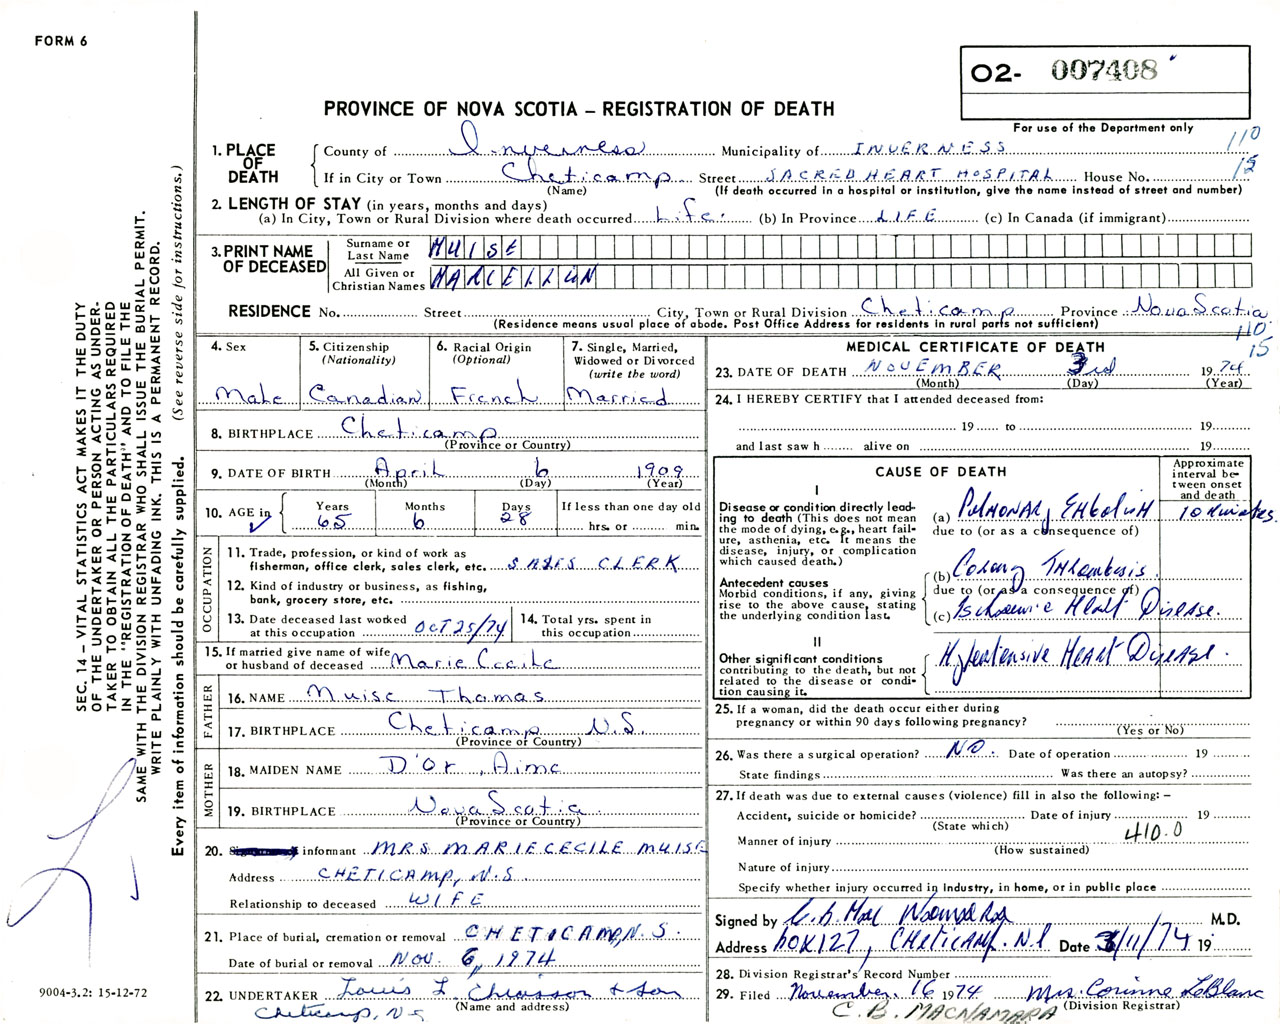 FORM 6
O2- 007408
PROVINCE OF NOVA SCOTIA – REGISTRATION OF DEATH
For use of the Department only
110
15
1. PLACE OF DEATH
County of Inverness Municipality of INVERNESS
If in City or Town Cheticamp Street SACRED HEART HOSPITAL House No.
(Name) (If death occurred in a hospital or institution, give the name instead of street and number)
2. LENGTH OF STAY (in years, months and days)
(a) In City, Town or Rural Division where death occurred Life. (b) In Province LIFE (c) In Canada (if immigrant)
3. PRINT NAME OF DECEASED
Surname or Last Name MUISE
All Given or Christian Names MARCELLIN
RESIDENCE No. Street City, Town or Rural Division Cheticamp Province Nova Scotia
(Residence means usual place of abode. Post Office Address for residents in rural parts not sufficient)
110
15
4. Sex
Male
5. Citizenship
(Nationality)
Canadian
6. Racial Origin
(Optional)
French
7. Single, Married,
Widowed or Divorced
(write the word)
Married
8. BIRTHPLACE Cheticamp
(Province or Country)
9. DATE OF BIRTH April 6 1909
(Month) (Day) (Year)
10. AGE in
Years Months Days If less than one day old
65 6 28 hrs. or min.
OCCUPATION
11. Trade, profession, or kind of work as
fisherman, office clerk, sales clerk, etc. SALES CLERK
12. Kind of industry or business, as fishing,
bank, grocery store, etc.
13. Date deceased last worked
at this occupation OCT 25/74
14. Total yrs. spent in
this occupation
15. If married give name of wife
or husband of deceased Marie Cecile
FATHER
16. NAME Muise Thomas
17. BIRTHPLACE Cheticamp N.S.
(Province or Country)
MOTHER
18. MAIDEN NAME D'Or, Aime
19. BIRTHPLACE Nova Scotia
(Province or Country)
20. informant MRS MARIE CECILE MUISE
Address CHETICAMP, N.S.
Relationship to deceased WIFE
21. Place of burial, cremation or removal CHETICAMP, N.S.
Date of burial or removal NOV. 6, 1974
22. UNDERTAKER Louis L Chiasson & Son
(Name and address)
Cheticamp, N.S
MEDICAL CERTIFICATE OF DEATH
23. DATE OF DEATH NOVEMBER 3rd 1974
(Month) (Day) (Year)
24. I HEREBY CERTIFY that I attended deceased from:
19 to 19
and last saw h alive on 19
CAUSE OF DEATH
Approximate interval between onset and death
I
Disease or condition directly leading to death (This does not mean the mode of dying, e.g., heart failure, asthenia, etc. It means the disease, injury, or complication which caused death.)
(a) PULMONARY EMBOLISM 10 minutes.
due to (or as a consequence of)
Antecedent causes
Morbid conditions, if any, giving rise to the above cause, stating the underlying condition last.
(b) Coronary THROMBOSIS.
due to (or as a consequence of)
(c) Ischaemic HEART DISEASE.
II
Other significant conditions
contributing to the death, but not related to the disease or condition causing it.
Hypertensive HEART DISEASE.
25. If a woman, did the death occur either during
pregnancy or within 90 days following pregnancy?
(Yes or No)
26. Was there a surgical operation? NO. Date of operation 19
State findings Was there an autopsy?
27. If death was due to external causes (violence) fill in also the following: –
Accident, suicide or homicide? Date of injury 19
(State which)
410.0
Manner of injury
(How sustained)
Nature of injury
Specify whether injury occurred in Industry, in home, or in public place
Signed by C. B. Mac Namara M.D.
Address BOX 127, CHETICAMP. N.S Date 3/11/74 19
28. Division Registrar's Record Number
29. Filed November. 16 1974 Mrs. Corinne LeBlanc
(Division Registrar)
C. B. MACNAMARA
SEC. 14 – VITAL STATISTICS ACT MAKES IT THE DUTY
OF THE UNDERTAKER OR PERSON ACTING AS UNDER-
TAKER TO OBTAIN ALL THE PARTICULARS REQUIRED
IN THE "REGISTRATION OF DEATH" AND TO FILE THE
SAME WITH THE DIVISION REGISTRAR WHO SHALL ISSUE THE BURIAL PERMIT.
WRITE PLAINLY WITH UNFADING INK. THIS IS A PERMANENT RECORD.
Every item of information should be carefully supplied. (See reverse side for instructions.)
9004-3.2: 15-12-72